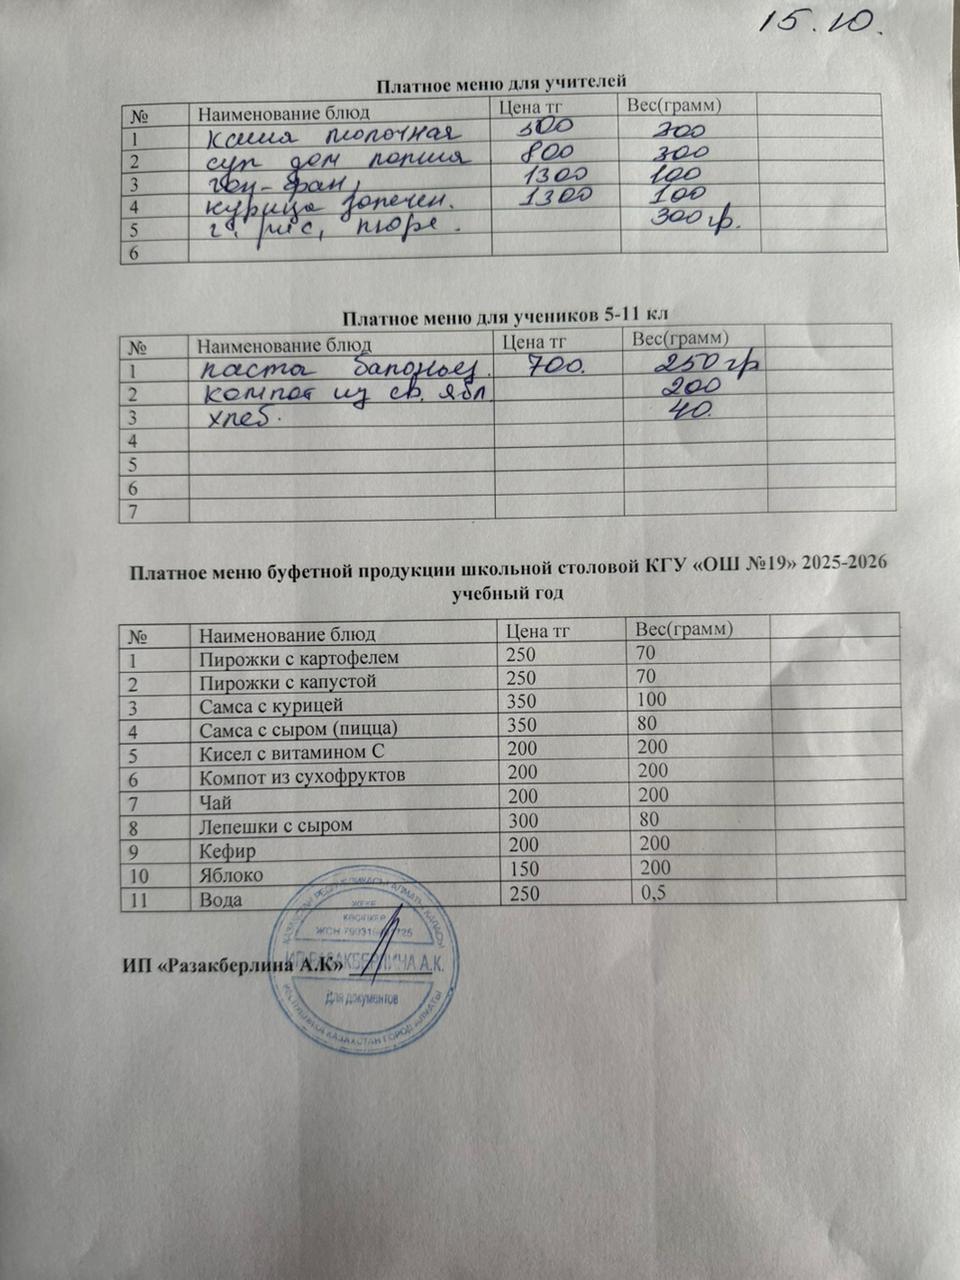 15.10.
Платное меню для учителей
№ Наименование блюд Цена тг Вес(грамм)
1 каша молочная 300
2 суп дом лапша 800 300
3 1300 100
4 курица запечен. 1300 100
5 рис, пюре. 300 гр.
6
Платное меню для учеников 5-11 кл
№ Наименование блюд Цена тг Вес(грамм)
1 паста 700. 250 гр
2 компот из св. ябл 200
3 хлеб. 40.
4
5
6
7
Платное меню буфетной продукции школьной столовой КГУ «ОШ №19» 2025-2026
учебный год
№ Наименование блюд Цена тг Вес(грамм)
1 Пирожки с картофелем 250 70
2 Пирожки с капустой 250 70
3 Самса с курицей 350 100
4 Самса с сыром (пицца) 350 80
5 Кисел с витамином С 200 200
6 Компот из сухофруктов 200 200
7 Чай 200 200
8 Лепешки с сыром 300 80
9 Кефир 200 200
10 Яблоко 150 200
11 Вода 250 0,5
ИП «Разакберлина А.К»
Для документов